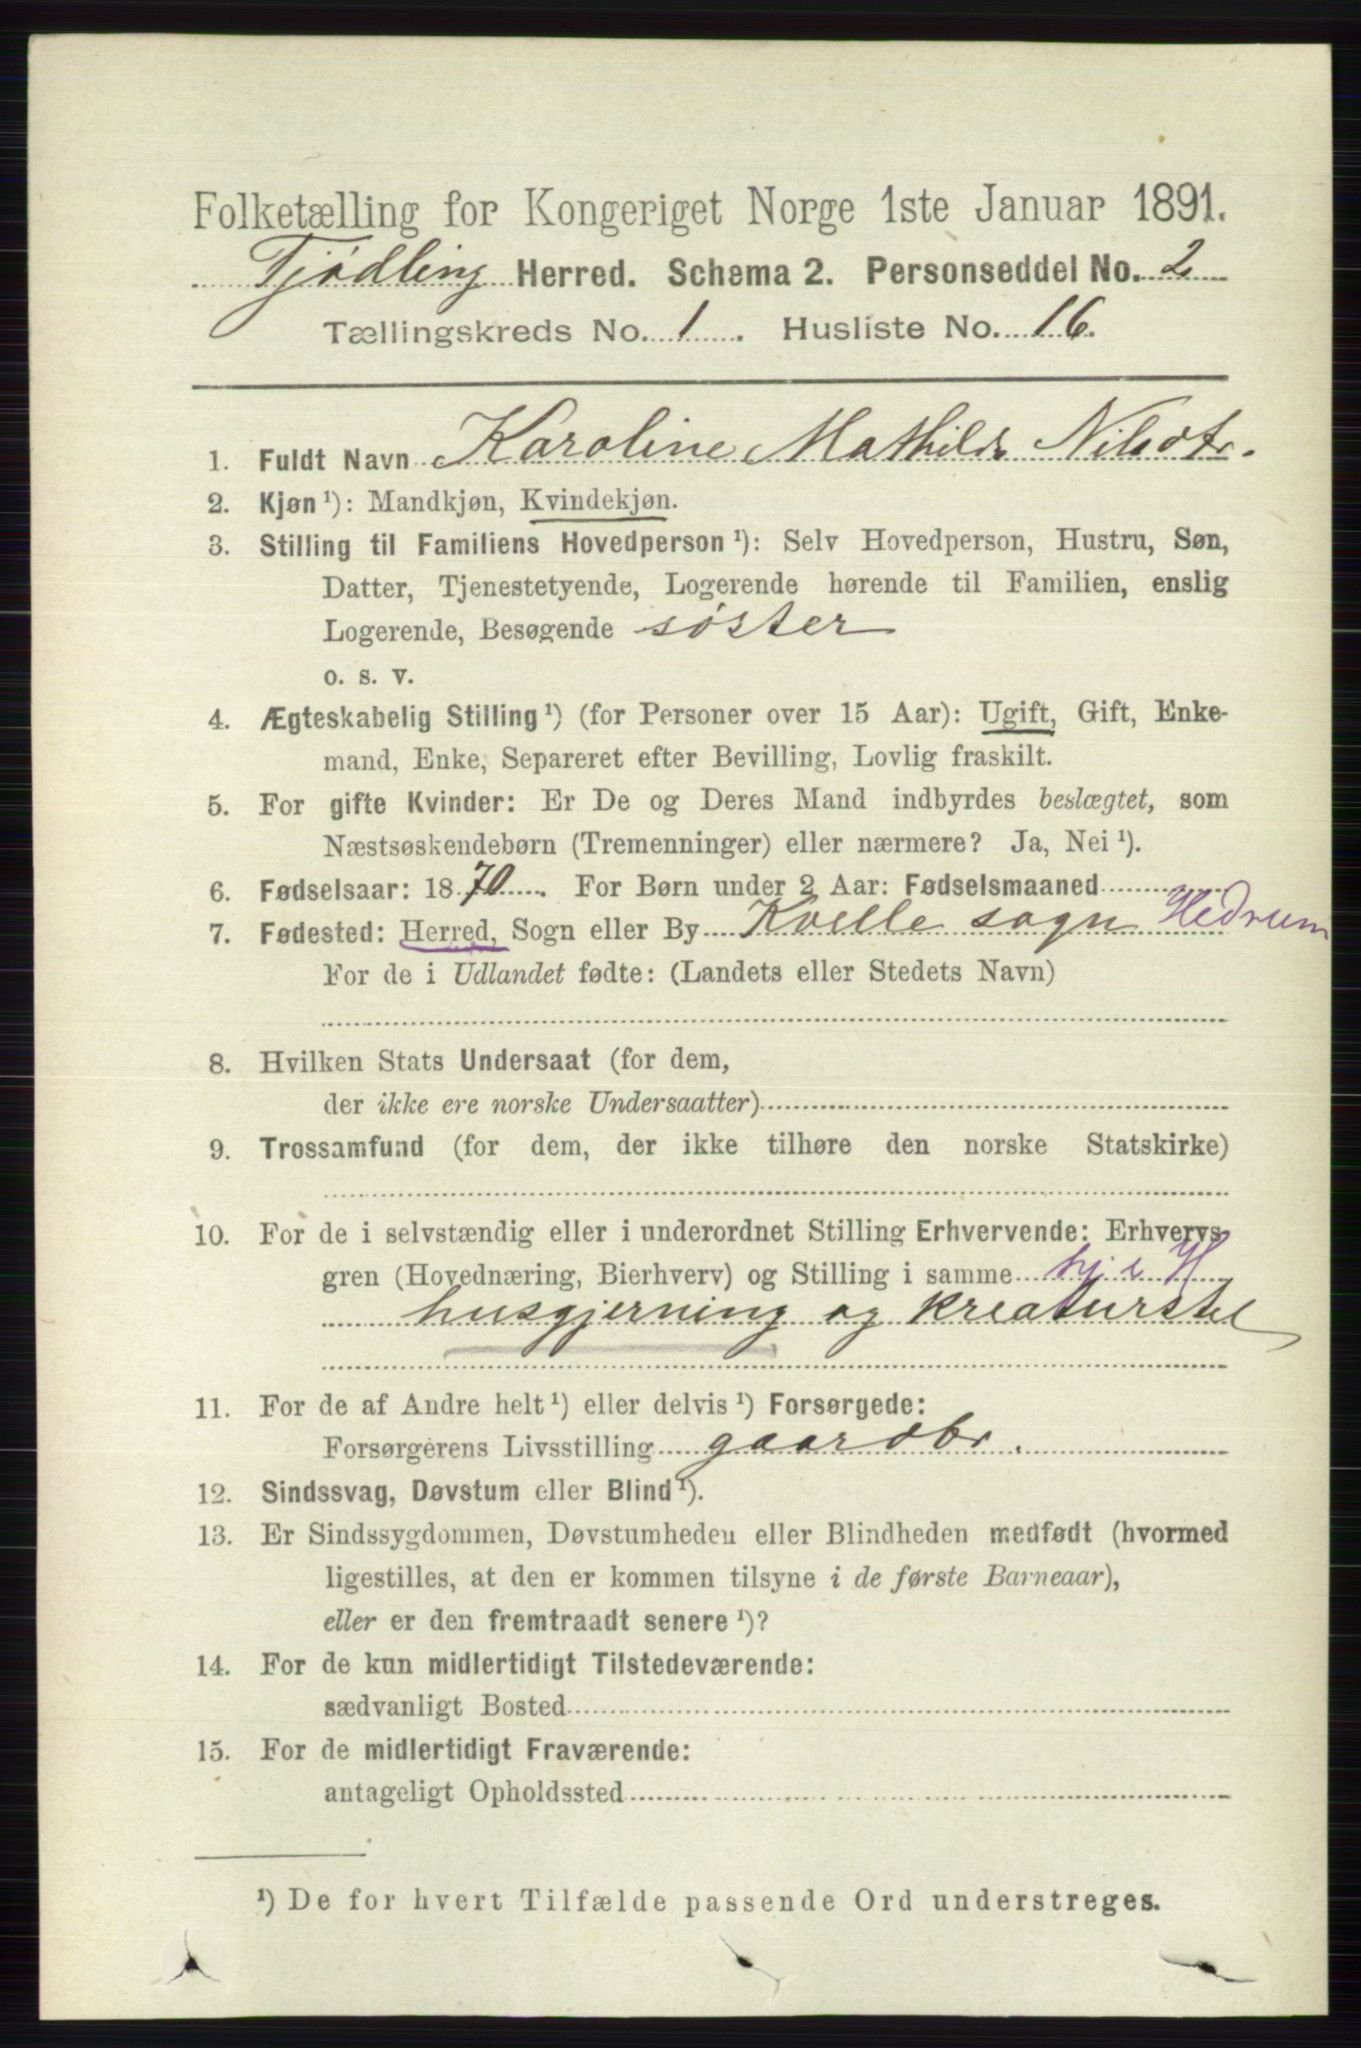 Folketælling for Kongeriget Norge 1ste Januar 1891.
Tjødling Herred. Schema 2. Personseddel No. 2
Tællingskreds No. 1. Husliste No. 16.
1. Fuldt Navn Karoline Mathilde Nilsdtr.
2. Kjøn ¹): Mandkjøn, Kvindekjøn.
3. Stilling til Familiens Hovedperson ¹): Selv Hovedperson, Hustru, Søn,
Datter, Tjenestetyende, Logerende hørende til Familien, enslig
Logerende, Besøgende søster
o. s. v.
4. Ægteskabelig Stilling ¹) (for Personer over 15 Aar): Ugift, Gift, Enke-
mand, Enke, Separeret efter Bevilling, Lovlig fraskilt.
5. For gifte Kvinder: Er De og Deres Mand indbyrdes beslægtet, som
Næstsøskendebørn (Tremenninger) eller nærmere? Ja, Nei ¹).
6. Fødselsaar: 1870. For Børn under 2 Aar: Fødselsmaaned
7. Fødested: Herred, Sogn eller By Kvelle sogn Hedrum
For de i Udlandet fødte: (Landets eller Stedets Navn)
8. Hvilken Stats Undersaat (for dem,
der ikke ere norske Undersaatter)
9. Trossamfund (for dem, der ikke tilhøre den norske Statskirke)
10. For de i selvstændig eller i underordnet Stilling Erhvervende: Erhvervs-
gren (Hovednæring, Bierhverv) og Stilling i samme hj i H
husgjerning og kreaturstel
11. For de af Andre helt ¹) eller delvis ¹) Forsørgede:
Forsørgerens Livsstilling gaardbr.
12. Sindssvag, Døvstum eller Blind ¹).
13. Er Sindssygdommen, Døvstumheden eller Blindheden medfødt (hvormed
ligestilles, at den er kommen tilsyne i de første Barneaar),
eller er den fremtraadt senere ¹)?
14. For de kun midlertidigt Tilstedeværende:
sædvanligt Bosted
15. For de midlertidigt Fraværende:
antageligt Opholdssted
¹) De for hvert Tilfælde passende Ord understreges.